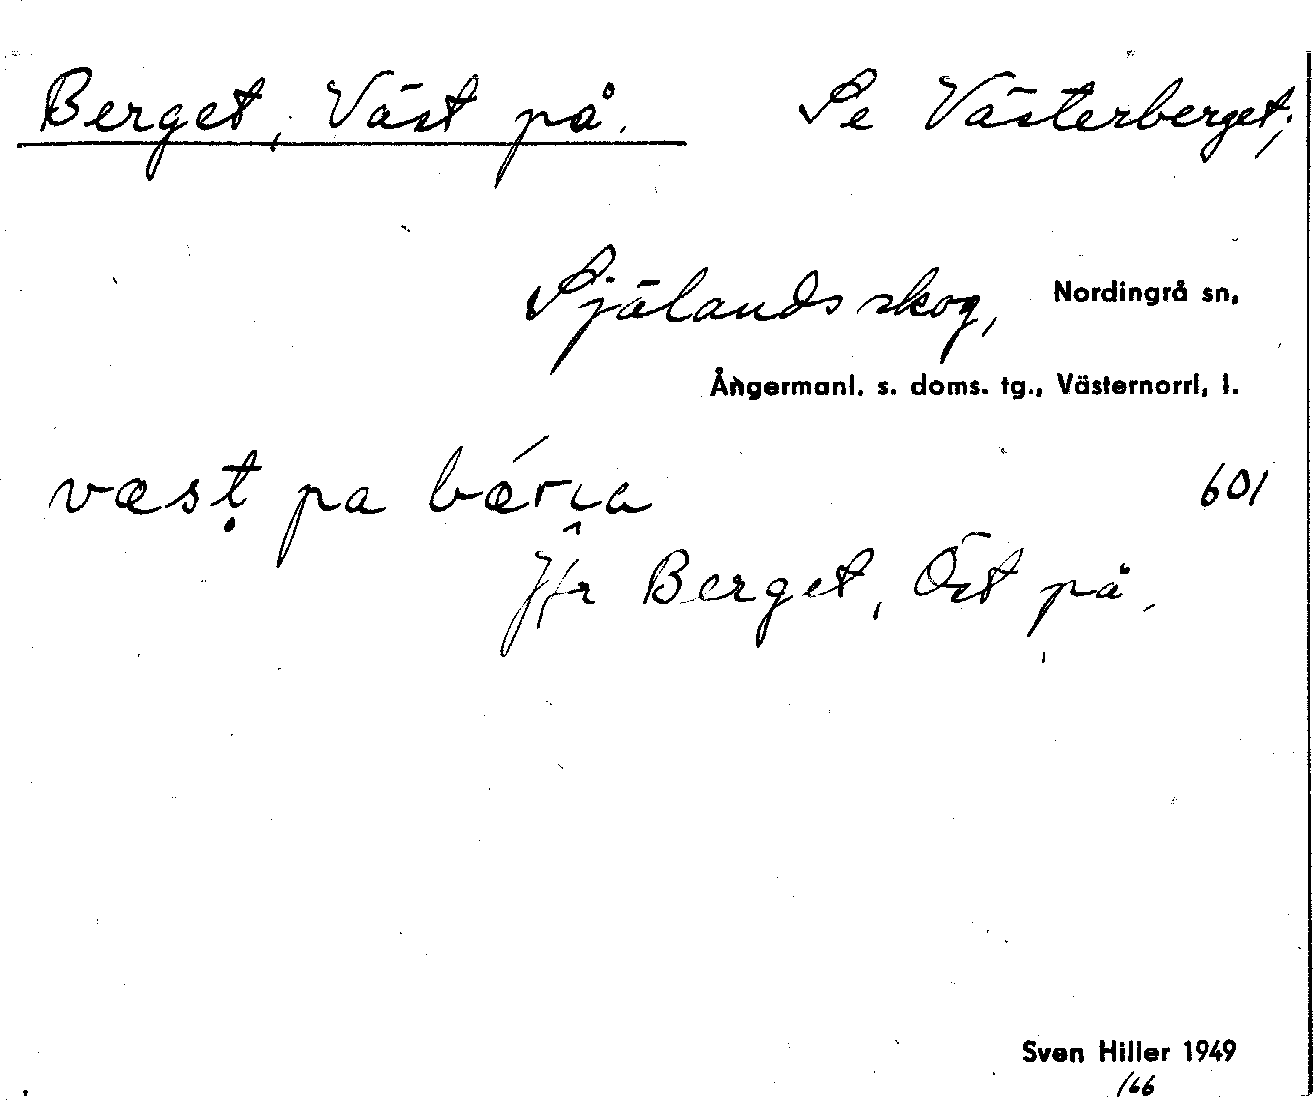 Berget, Väst på. Se Västerberget;
Själandsskog, Nordingrå sn,
Ångermanl. s. doms. tg., Västernorrl, l.
væsṭ pa 601
Jfr Berget, Öst på,
Sven Hiller 1949
166